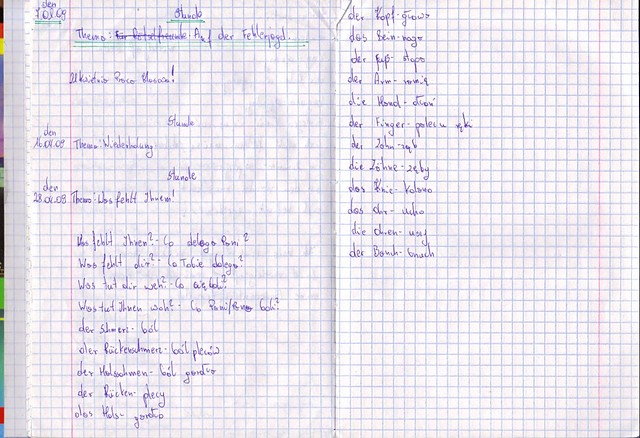 den
7.04.09
Stunde
Thema: Für Rätselfreunde. Auf der Fehlerjagd.
21 kwietnia Praca Klasowa!
Stunde
den
16.04.09 Thema: Wiederholung
Stunde
den
28.04.09 Thema: Was fehlt Ihnen!
Was fehlt Ihnen? - Co dolega Pani?
Was fehlt dir? - Co Tobie dolega?
Was tut dir weh? - Co cię boli?
Was tut Ihnen weh? - Co Pani/Pana boli?
der Schmerz - ból
der Rückenschmerz - ból pleców
der Halsschmen - ból gardła
der Rücken - plecy
das Hals - gardło
der Kopf - głowa
das Bein - noga
der Fuß - stopa
der Arm - ramię
die Hand - dłoń
der Finger - palec u ręk
der Zahn - ząb
die Zähne - zęby
das Knie - kolano
das Ohr - ucho
die Ohren - uszy
der Bauch - brzuch